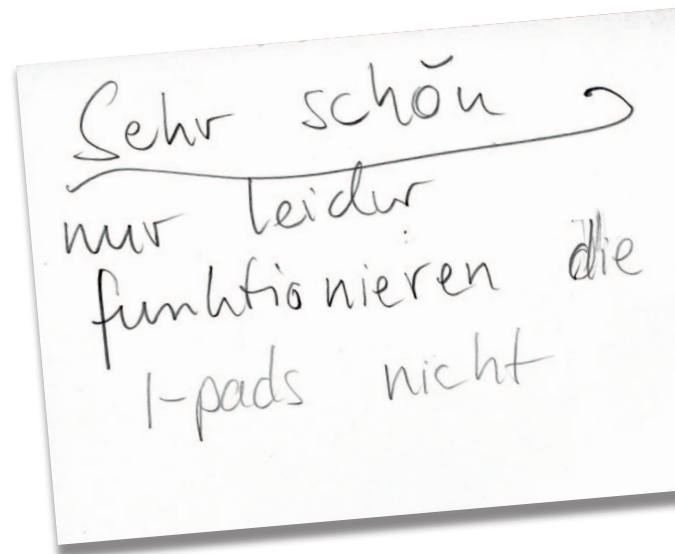 Sehr schön
nur leider
funktionieren die
I-pads nicht